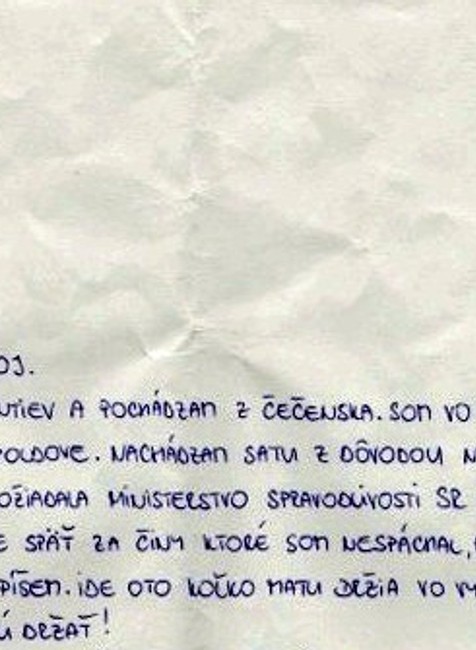 OJ.
UTIEV A POCHÁDZAM Z ČEČENSKA. SOM VO
POLDOVE. NACHÁDZAM SATU Z DÔVODOU N
OŽIADALA MINISTERSTVO SPRAVODLIVOSTI SR
E SPÄŤ ZA ČINY KTORÉ SOM NESPÁCHAL,
PÍŠEM. IDE OTO KOĽKO MATU DRŽIA VO VY
Ú DRŽAŤ!